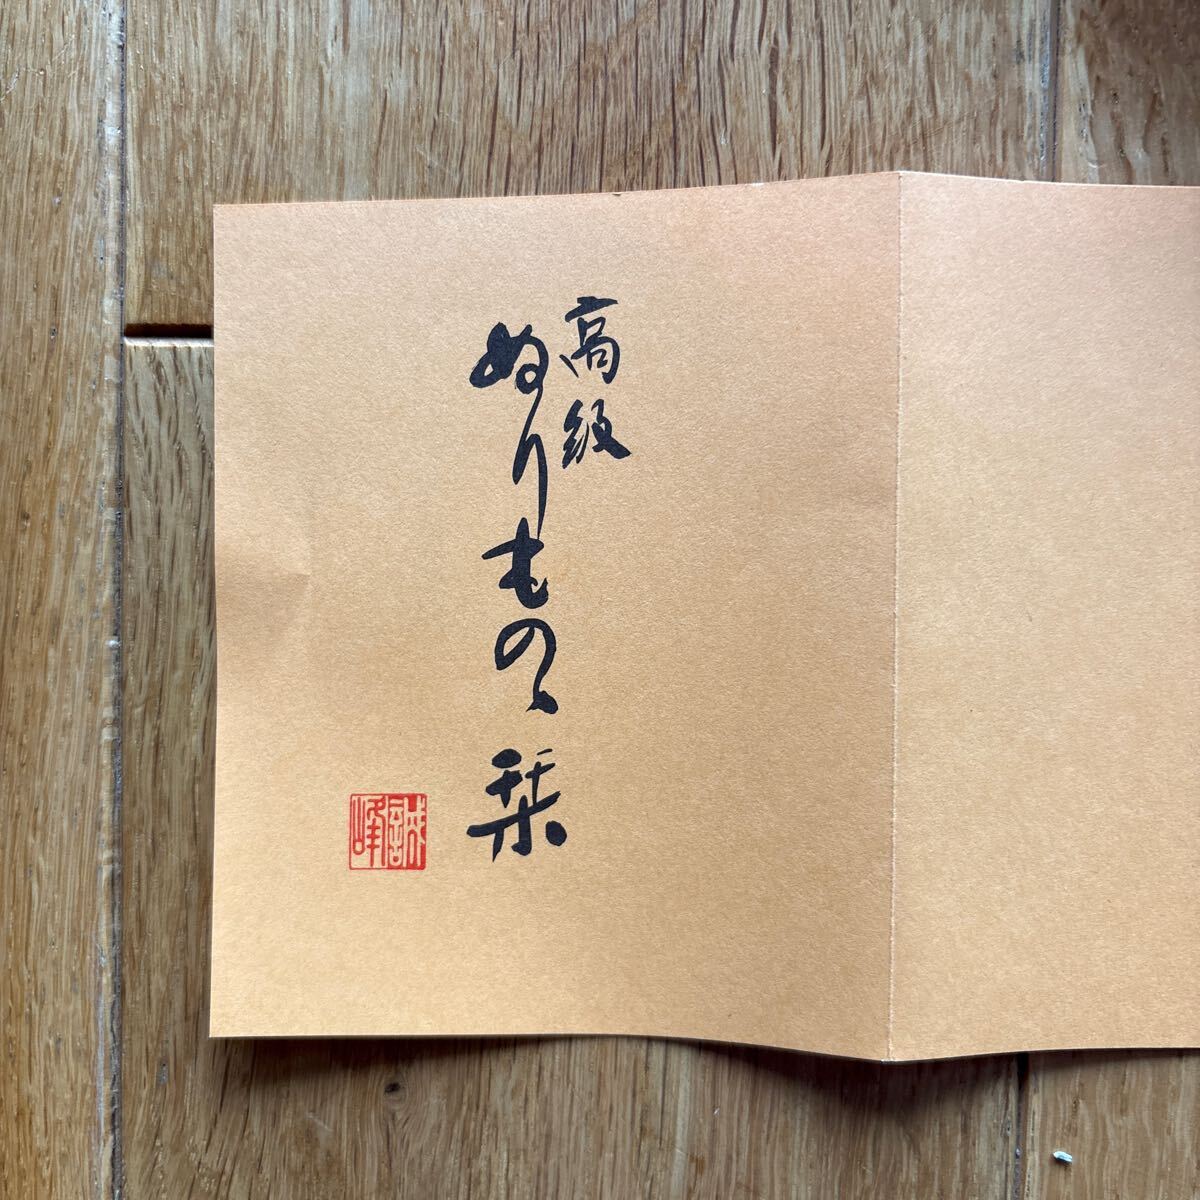 高級
ぬりものゝ栞
誠峰